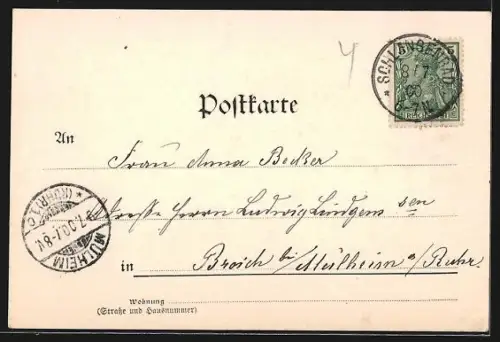 4
SCHLANGENBAD
8/7
00
6-7N.
Postkarte
An
Frau Anna Becker
Adresse Herrn Ludwig Lindgens sen
in Broich bei Mülheim a/Ruhr.
MÜLHEIM
(RUHR) 1 c
7.00.7-8V.
Wohnung
(Straße und Hausnummer)